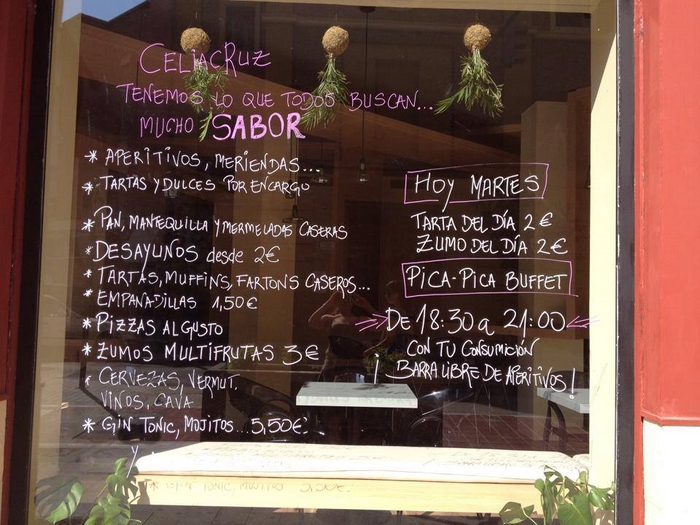 CELIACRUZ
TENEMOS LO QUE TODOS BUSCAN...
MUCHO SABOR
* APERITIVOS, MERIENDAS...
* TARTAS Y DULCES POR ENCARGO
* PAN, MANTEQUILLA Y MERMELADAS CASERAS
* DESAYUNOS desde 2€
* TARTAS, MUFFINS, FARTONS CASEROS...
* EMPANADILLAS 1,50€
* PIZZAS AL GUSTO
* ZUMOS MULTIFRUTAS 3€
* CERVEZAS, VERMUT,
VINOS, CAVA
* GIN TONIC, MOJITOS...5,50€
y
HOY MARTES
TARTA DEL DÍA 2€
ZUMO DEL DÍA 2€
PICA-PICA BUFFET
DE 18:30 a 21:00
CON TU CONSUMICIÓN
¡BARRA LIBRE DE APERITIVOS!